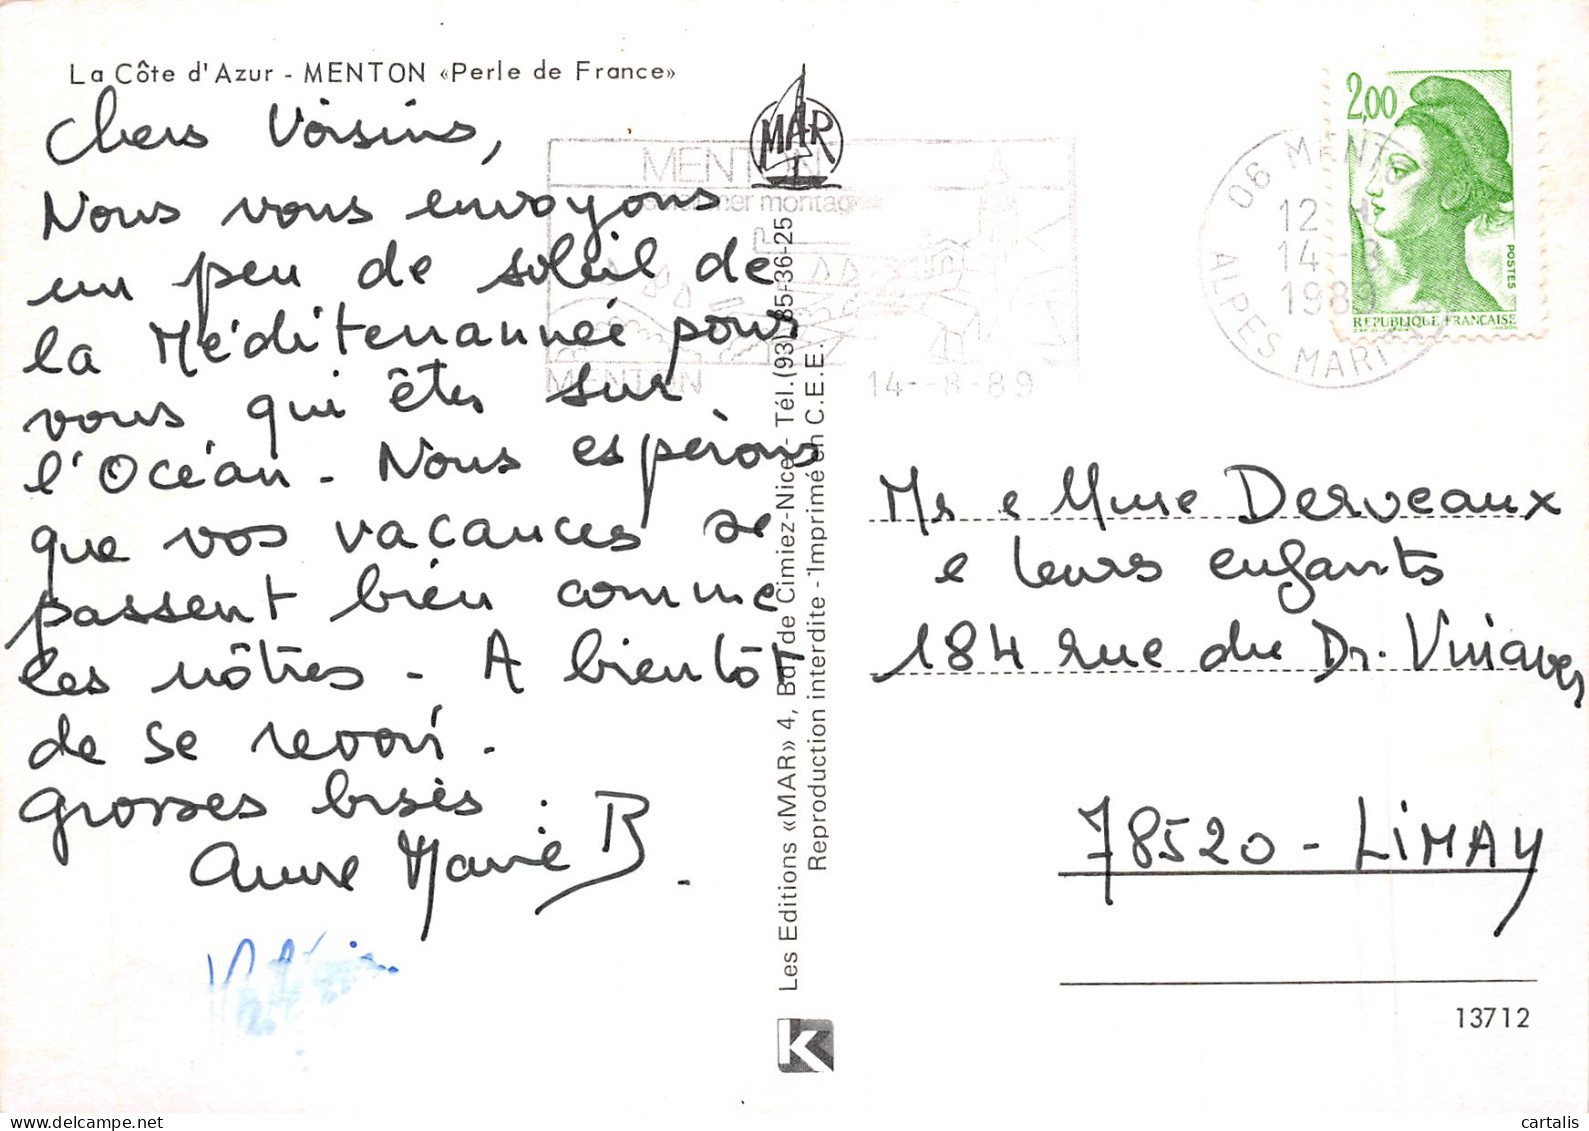 La Côte d'Azur - MENTON «Perle de France»
Chers Voisins,
Nous vous envoyons
un peu de soleil de
la Méditerrannée pour
vous qui êtes sur
l'Océan - Nous espérons
que vos vacances se
passent bien comme
les nôtres - A bientôt
de se revoir -
Grosses bises.
Anne Marie B
MAR
MENTON
soleil mer montagne
MENTON
14-8-89
Les Editions «MAR» 4, Bd de Cimiez-Nice - Tél. (93) 85-36-25
Reproduction interdite - Imprimé en C.E.E.
K
2,00
POSTES
REPUBLIQUE FRANCAISE
06 MENTON
12 H
14-8
1989
ALPES MARI
Mr e Mme Derveaux
e leurs enfants
184 rue du Dr. Vinaver
78520 - LIMAY
13712
cartalis